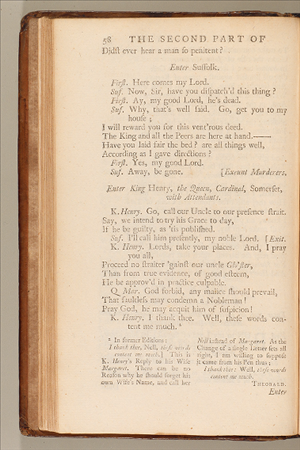 58 THE SECOND PART OF
Didst ever hear a man so penitent?
Enter Suffolk.
First. Here comes my Lord.
Suf. Now, Sir, have you dispatch'd this thing?
First. Ay, my good Lord, he's dead.
Suf. Why, that's well said. Go, get you to my
house;
I will reward you for this vent'rous deed.
The King and all the Peers are here at hand.——
Have you laid fair the bed? are all things well,
According as I gave directions?
First. Yes, my good Lord.
Suf. Away, be gone. [Exeunt Murderers.
Enter King Henry, the Queen, Cardinal, Somerset,
with Attendants.
K. Henry. Go, call our Uncle to our presence strait.
Say, we intend to try his Grace to day,
If he be guilty, as 'tis published.
Suf. I'll call him presently, my noble Lord. [Exit.
K. Henry. Lords, take your places. And, I pray
you all,
Proceed no straiter 'gainst our uncle Glo'ster,
Than from true evidence, of good esteem,
He be approv'd in practice culpable.
Q. Mar. God forbid, any malice should prevail,
That faultless may condemn a Nobleman!
Pray God, he may acquit him of suspicion!
K. Henry. I thank thee. Well, these words con-
tent me much.
In former Editions:
I thank thee, Nell, these words
content me much.] This is
K. Henry's Reply to his Wife
Margaret. There can be no
Reason why he should forget his
own Wife's Name, and call her
Nell instead of Margaret. As the
Change of a single Letter sets all
right, I am willing to suppose
it came from his Pen thus;
I thank thee: Well, these words
content me much.
THEOBALD.
Enter